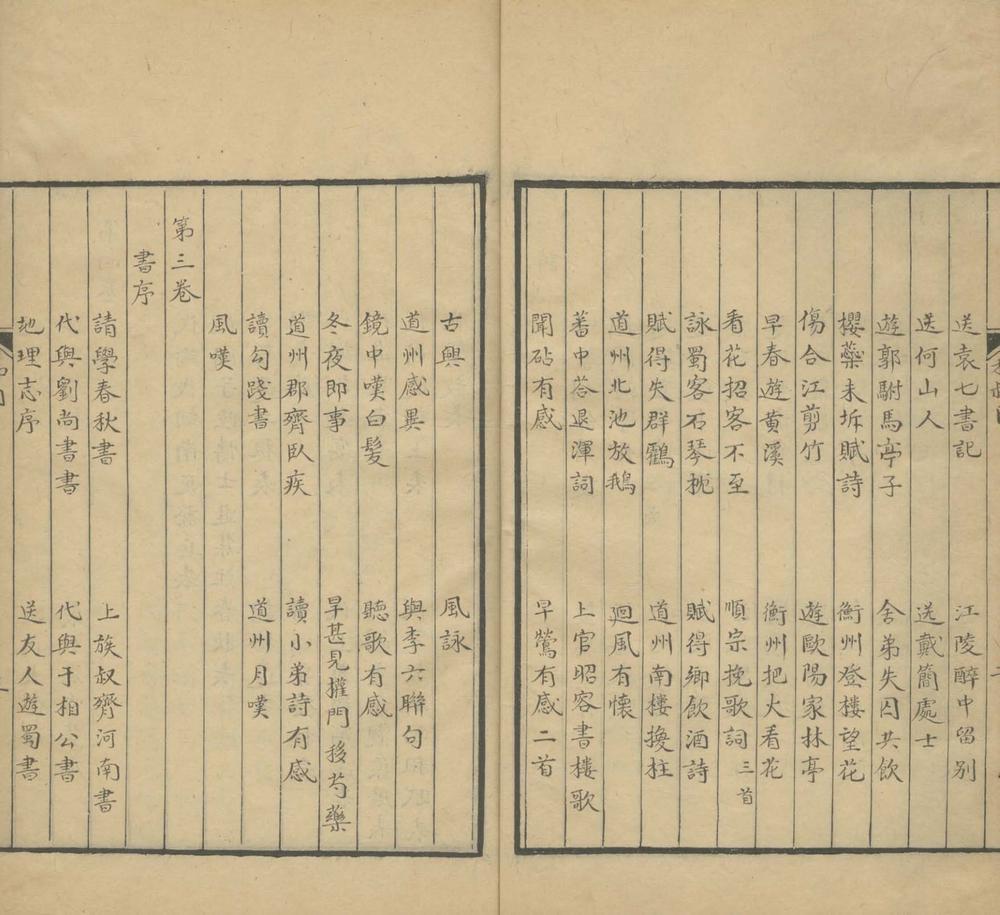 送袁七書記　江陵醉中留别
送何山人　送戴簡處士
遊郭駙馬亭子　舍弟失囚共飲
櫻蘂未坼賦詩　衡州登樓望花
傷合江剪竹　遊歐陽家林亭
早春遊黄溪　衡州把火看花
看花招客不至　順宗挽歌詞三首
詠蜀客石琴枕　賦得鄉飲酒詩
賦得失群鸖　道州南樓換柱
道州北池放鵝　迴風有懷
蕃中荅退渾詞　上官昭容書樓歌
聞砧有感　早鶯有感二首
古興　風詠
道州感異　與李六聯句
鏡中嘆白髮　聽歌有感
冬夜即事　旱甚見攉門移芍藥
道州郡齊臥疾　讀小弟詩有感
讀勾踐書　道州月嘆
風嘆
第三卷
書序
請學春秋書　上族叔齊河南書
代與劉尚書書　代與于相公書
地理志序　送友人遊蜀書